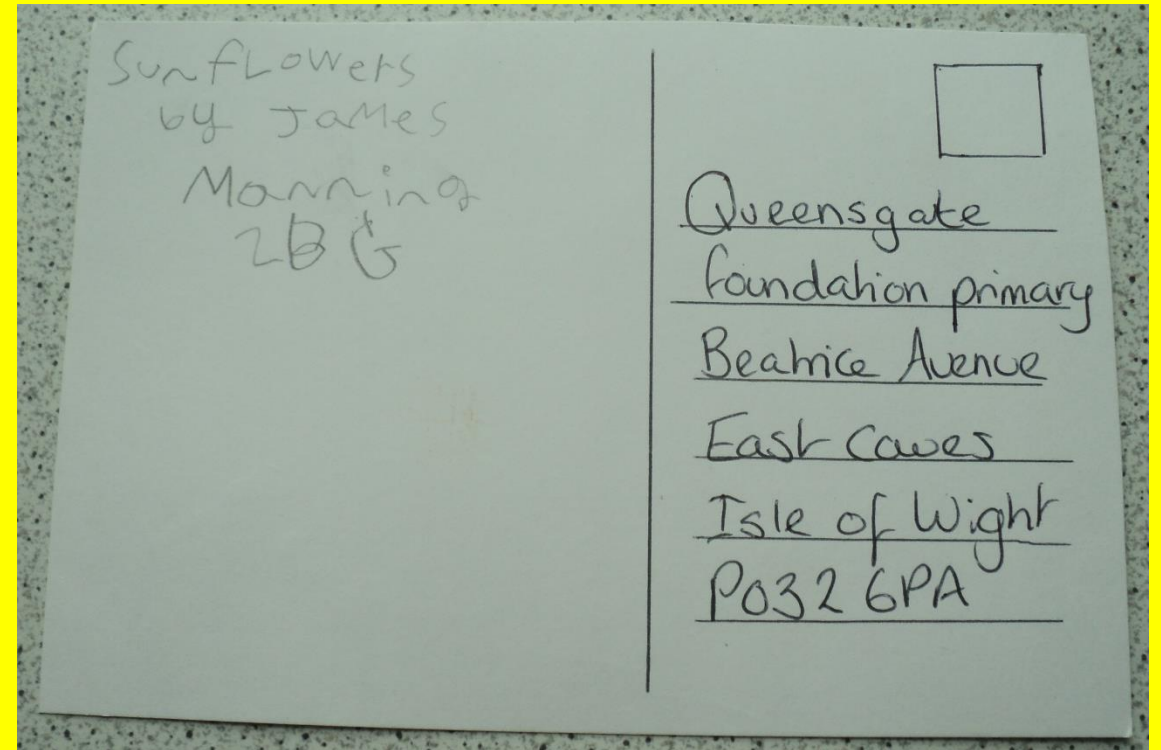 Sunflowers
by James
Manning
2BG
Queensgate
foundation primary
Beatrice Avenue
East Cowes
Isle of Wight
PO32 6PA